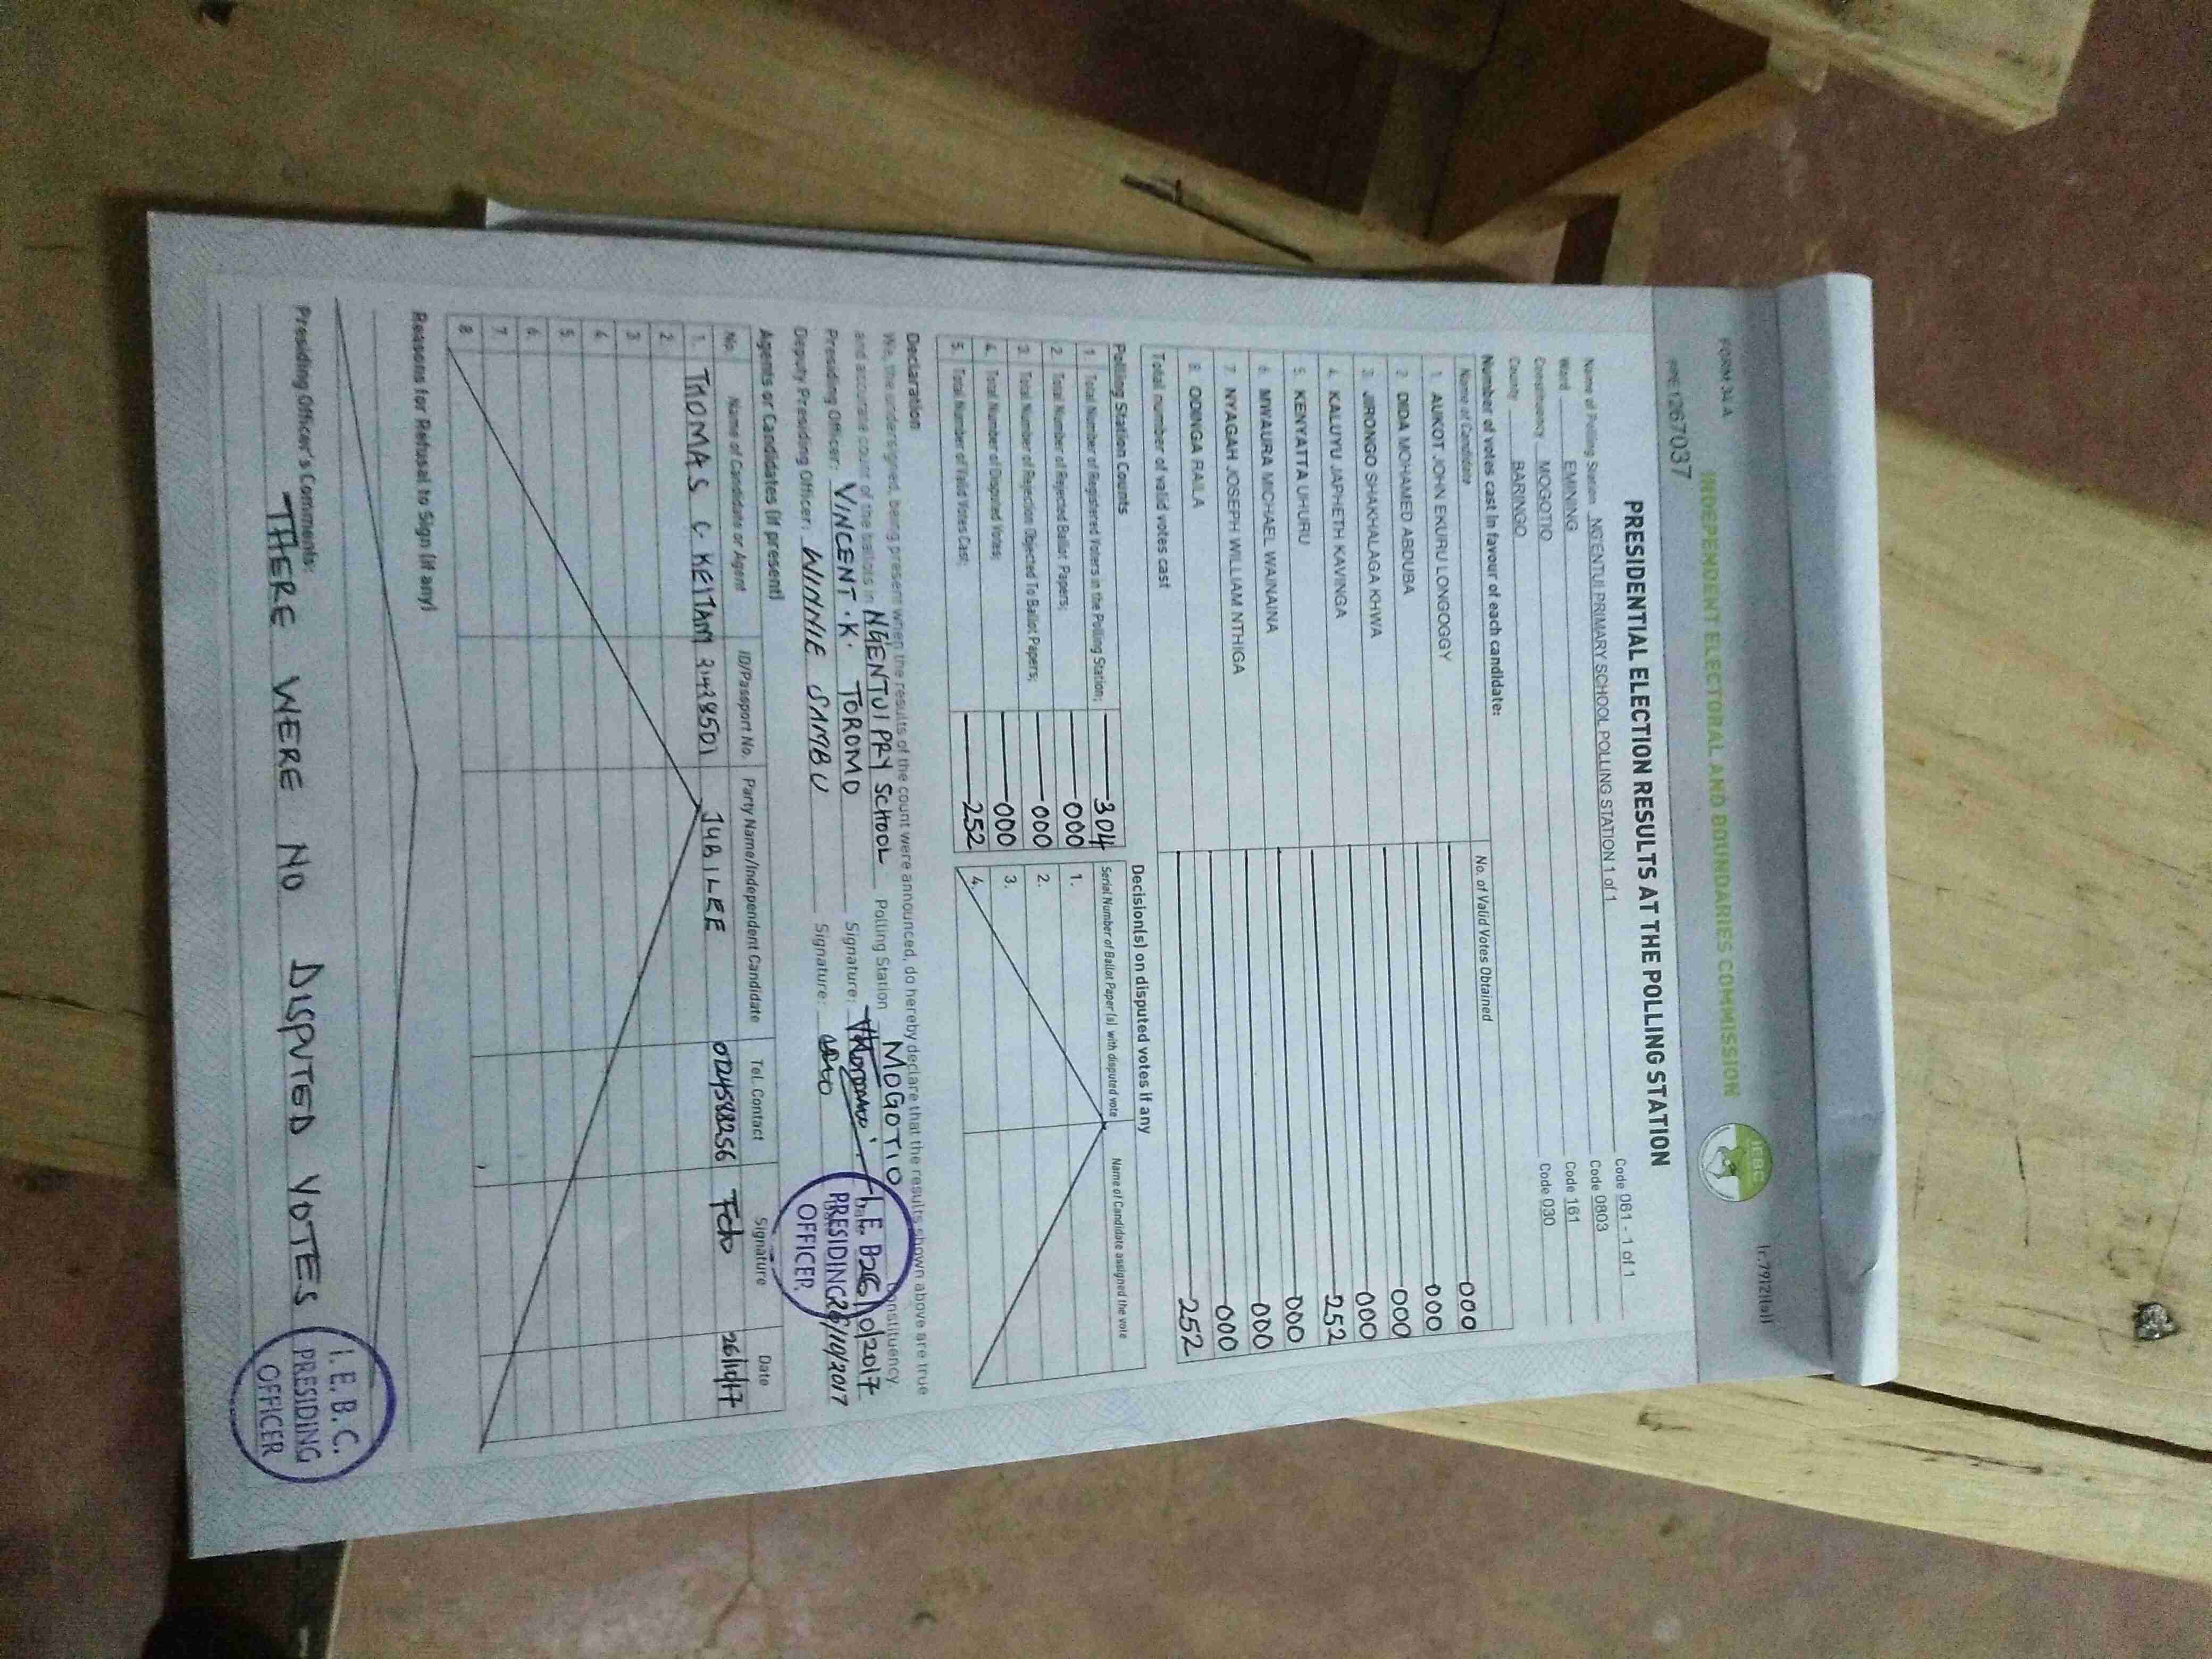 FORM 34 A
(r.79(2)(a))
INDEPENDENT ELECTORAL AND BOUNDARIES COMMISSION
IEBC
1267037
PRESIDENTIAL ELECTION RESULTS AT THE POLLING STATION
Name of Polling Station NG'ENTUI PRIMARY SCHOOL POLLING STATION 1 of 1 Code 061 - 1 of 1
Ward EMINING Code 0803
Constituency MOGOTIO Code 161
County BARINGO Code 030
Number of votes cast in favour of each candidate:
Name of Candidate No. of Valid Votes Obtained
1. AUKOT JOHN EKURU LONGOGGY 000
2. DIDA MOHAMED ABDUBA 000
3. JIRONGO SHAKHALAGA KHWA 000
4. KALUYU JAPHETH KAVINGA 000
5. KENYATTA UHURU 252
6. MWAURA MICHAEL WAINAINA 000
7. NYAGAH JOSEPH WILLIAM NTHIGA 000
8. ODINGA RAILA 000
Total number of valid votes cast 252
Polling Station Counts
1. Total Number of Registered Voters in the Polling Station; 304
2. Total Number of Rejected Ballot Papers; 000
3. Total Number of Rejection Objected To Ballot Papers; 000
4. Total Number of Disputed Votes; 000
5. Total Number of Valid Votes Cast; 252
Decision(s) on disputed votes if any
Serial Number of Ballot Paper (s) with disputed vote Name of Candidate assigned the vote
1.
2.
3.
4.
Declaration
We, the undersigned, being present when the results of the count were announced, do hereby declare that the results shown above are true
and accurate count of the ballots in NG'ENTUI PRY SCHOOL Polling Station MOGOTIO Constituency
Presiding Officer: VINCENT .K. TOROMO Signature: 26/10/2017
Deputy Presiding Officer: WINNIE SAMBU Signature: 26/10/2017
I.E.B.C.
PRESIDING
OFFICER
Agents or Candidates (if present)
No. Name of Candidate or Agent ID/Passport No. Party Name/Independent Candidate Tel. Contact Signature Date
1. THOMAS C. KEITAM 21438501 JUBILEE 0724588256 26/10/17
2.
3
4
5
6.
7.
8.
Reasons for Refusal to Sign (if any)
Presiding Officer's Comments:
THERE WERE NO DISPUTED VOTES
I. E. B. C.
PRESIDING
OFFICER